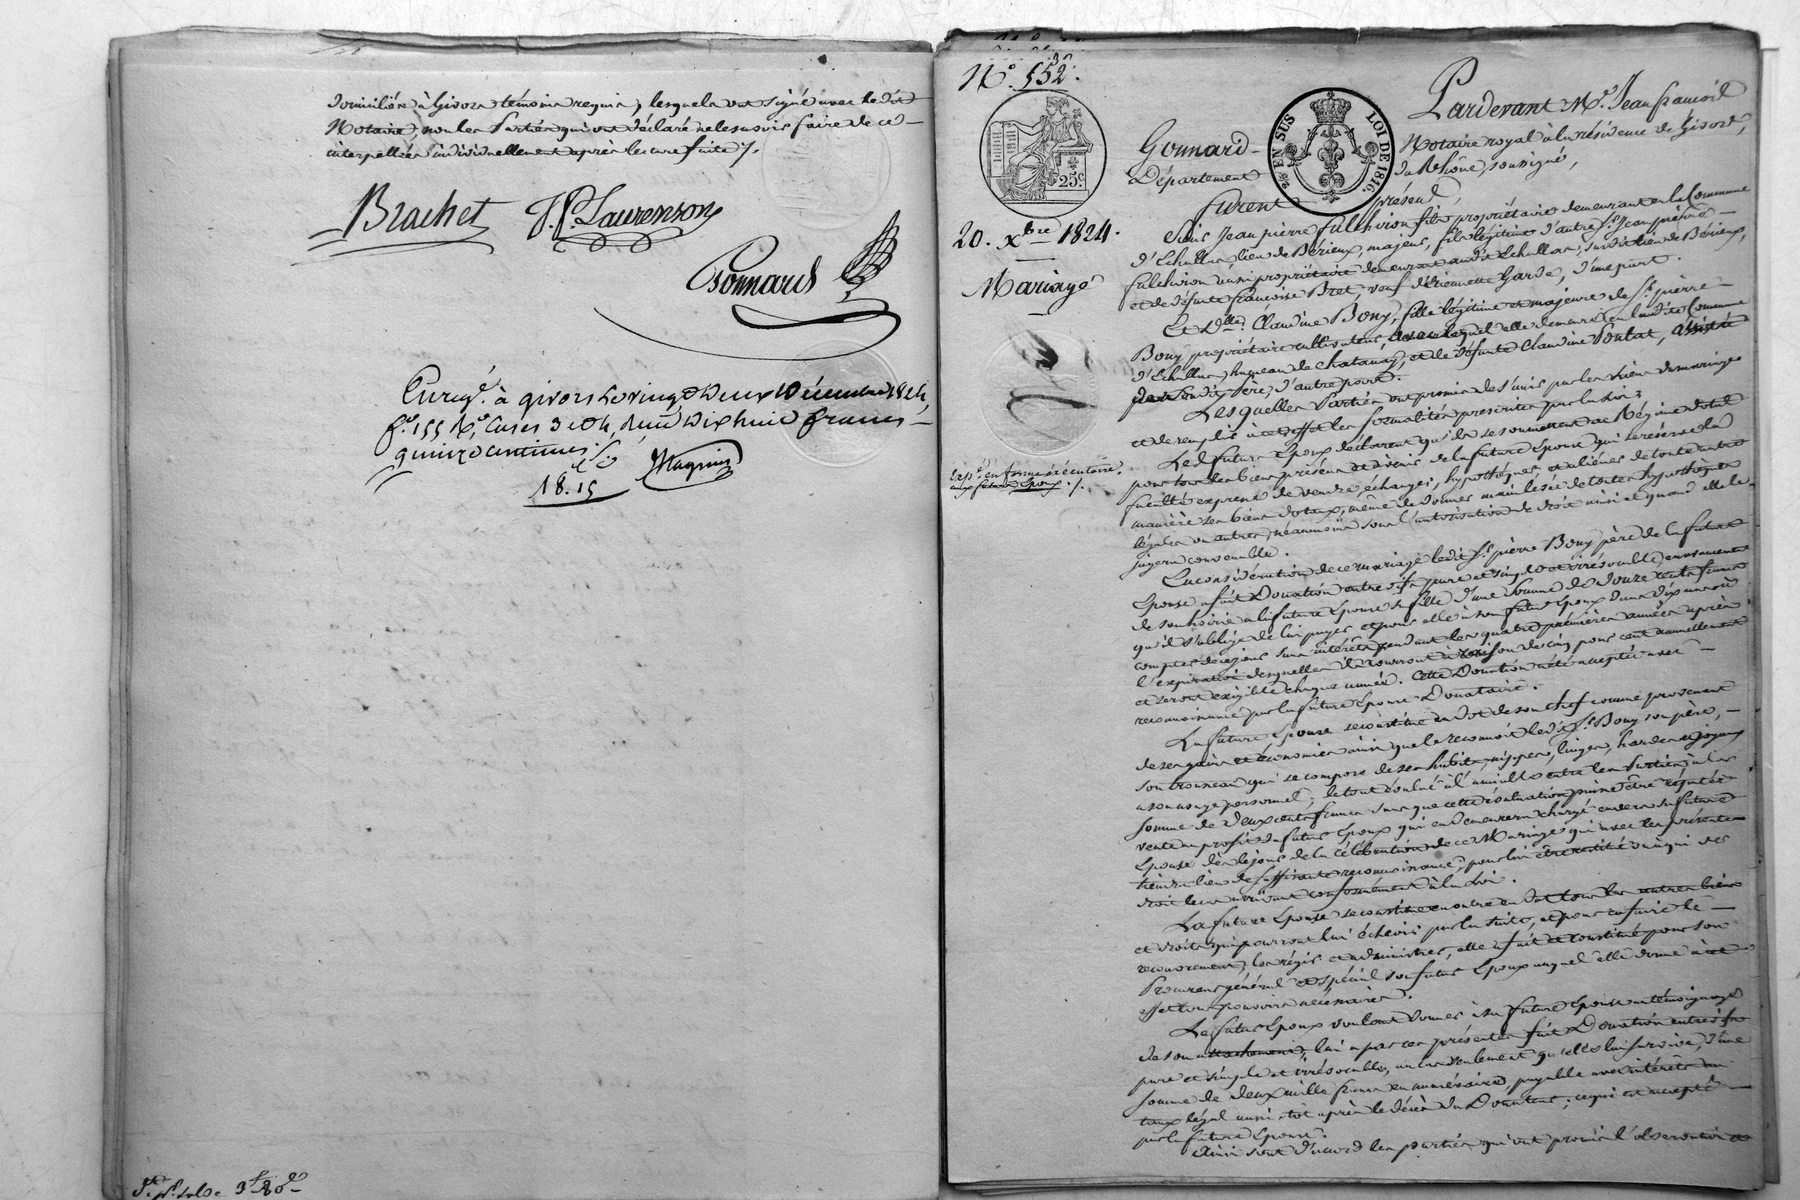 domiciliés à Givors témoins requis, lesquels ont signé avec ledit
Notaire, non les Parties qui ont déclaré ne le savoir faire de ce
interpellées individuellement après lecture faite ./.
Brachet J. P. Laurenson
Gonnard
Enreg.é à Givors le vingt deux Décembre 1824,
f.o 155 R.o Cases 3 et 4, reçu dix huit francs
quinze centimes
18.15
Magnin
N.o 552.
25c
EN SUS LOI DE 1816.
20. xbre 1824.
Mariage
Exp.é en forme exécutoire
aux futurs Epoux ./.
Pardevant M.e Jean françois
Gonnard Notaire royal à la résidence de Givors,
Département du Rhône, soussigné,
furent présens,
Sieur Jean pierre fulchiron fils propriétaire demeurant en la Commune
d'Echallas lieu de Bérieux, majeur, fils légitime d'autre S.r Jean pierre
fulchiron aussi propriétaire demeurant audit Echallas, susdit lieu de Bérieux,
et de défunte françoise Bret, veuf d'Etiennette Garde, d'une part.
Et D.lle Claudine Bony, fille légitime et majeure de S.r pierre
Bony propriétaire cultivateur, avec lequel elle demeure en ladite Commune
d'Echallas, hameau de Chatanay, et de défunte Claudine Poulat, assistée
de son dit père, d'autre part.
Lesquelles Parties ont promis de s'unir par les liens du mariage
et de remplir à cet effet les formalités prescrites par la loi.
Les futurs Epoux déclarent qu'ils se soumettent au Régime dotal
pour tous les biens présens et à venir de la future Epouse qui se réserve la
faculté expresse de vendre, échanger, hypothéquer, et aliéner de toute autre
manière ses biens dotaux, même de donner main levée de toutes hypothèques
légales ou autres, néanmoins sous l'autorisation de droit ainsi et quand elle le
jugera convenable.
En considération de ce mariage ledit S.r pierre Bony père de la future
Epouse a fait Donation entre vifs pure et simple et irrévocable, en avancement
de son hoirie à la future Epouse sa fille d'une somme de douze cents francs
qu'il s'oblige de lui payer et pour elle à son futur Epoux dans dix ans à
compter de ce jour sans intérêts pendant les quatre premières années après
l'expiration desquelles ils courront à raison de cinq pour cent annuellement
et seront exigibles chaque année. Cette Donation a été acceptée avec
reconnaissance par la future Epouse Donataire.
La future Epouse se constitue en dot de son chef comme provenant
de ses gains et économies ainsi que le reconnoit ledit S.r Bony son père,
son trousseau qui se compose de ses habits, nippes, linges, hardes et joyaux
à son usage personnel; le tout évalué à l'amiable entre les Parties à la
somme de deux cents francs sans que cette évaluation puisse être réputée
vente au profit du futur Epoux qui en demeurera chargé envers sa future
Epouse dès le jour de la célébration de ce Mariage qui avec les présentes
tiendra lieu de suffisante reconnaissance, pour lui être restitué ou à qui de
droit le cas arrivant conformément à la Loi.
La future Epouse se constitue en outre en dot tous les autres biens
et droits qui pourront lui échoir par la suite, et pour en faire le
recouvrement, les régir et administrer, elle a fait et constitué pour son
Procureur général et spécial son futur Epoux auquel elle donne à cet
effet tous pouvoirs nécessaires.
Le futur Epoux voulant donner à sa future Epouse un témoignage
de son attachement, lui a par ces présentes fait Donation entre vifs
pure et simple et irrévocable, au cas seulement qu'elle lui survive, d'une
somme de deux mille francs en numéraire, payable avec intérêts au
taux légal aussi-tôt après le décès du Donateur; ce qui est accepté
par la future Epouse.
Ainsi sont d'accord les parties qui ont promis l'observation